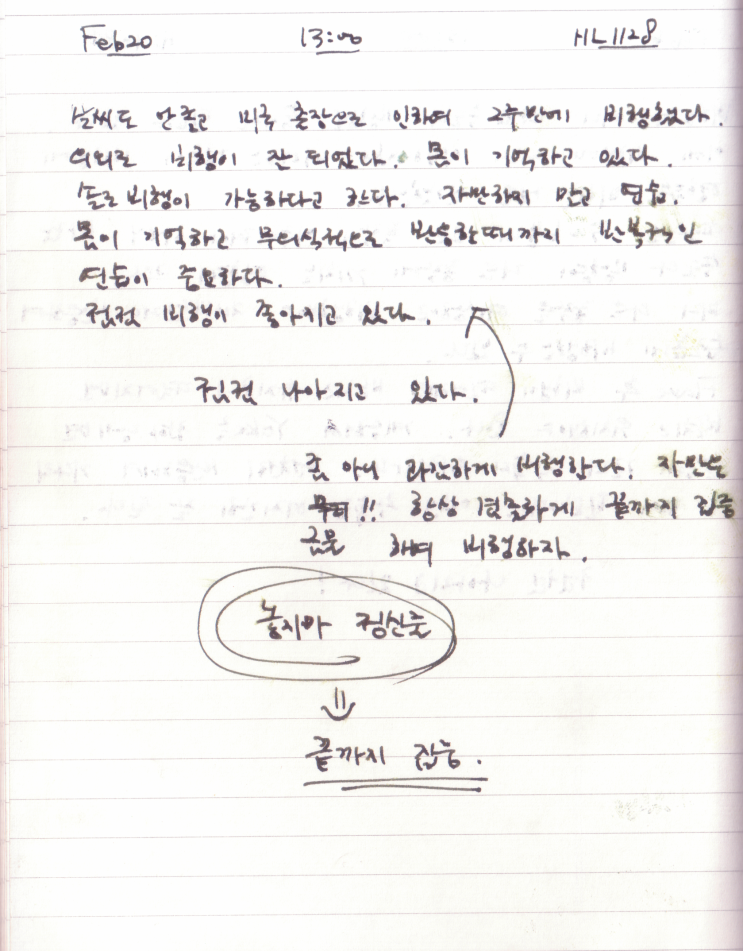 Feb 20 13:00 HL1128
날씨도 안좋고 미국 출장으로 인하여 2주만에 비행했다.
의외로 비행이 잘 되었다. 몸이 기억하고 있다.
솔로비행이 가능하다고 한다. 자만하지 말고 연습.
몸이 기억하고 무의식적으로 반응할때까지 반복적인
연습이 중요하다.
점점 비행이 좋아지고 있다.
점점 나아지고 있다.
좀 아니 과감하게 비행한다. 자만은
금물!! 항상 겸손하게 끝까지 집중
해여 비행하자.
놓지마 정신줄
⇓
끝까지 집중.